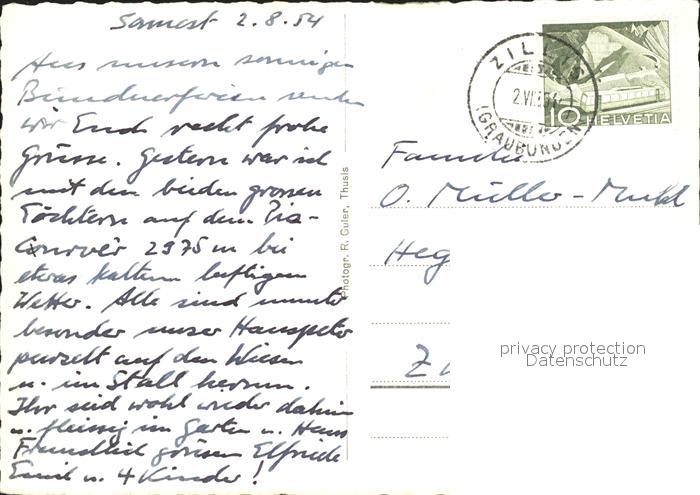 Samest 2.8.54
Aus unsern sonnigen
Bündnerferien senden
wir Euch recht frohe
Grüsse. Gestern war ich
mit den beiden grossen
Töchtern auf dem Piz-
Curvèr 2975 m bei
etwas kaltem luftigem
Wetter. Alle sind munter
besonder unser Hanspeter
purzelt auf den Wiesen
u. im Stall herum.
Ihr seid wohl wieder daheim
u. fleissig im Garten u. Haus
Freundlich grüssen Elfriede
Emil u. 4 Kinder!
Photogr. R. Guler, Thusis
ZILLIS
2.VIII.54
(GRAUBÜNDEN)
10 HELVETIA
Familie
O. Müller-
Heg
Z
privacy protection
Datenschutz